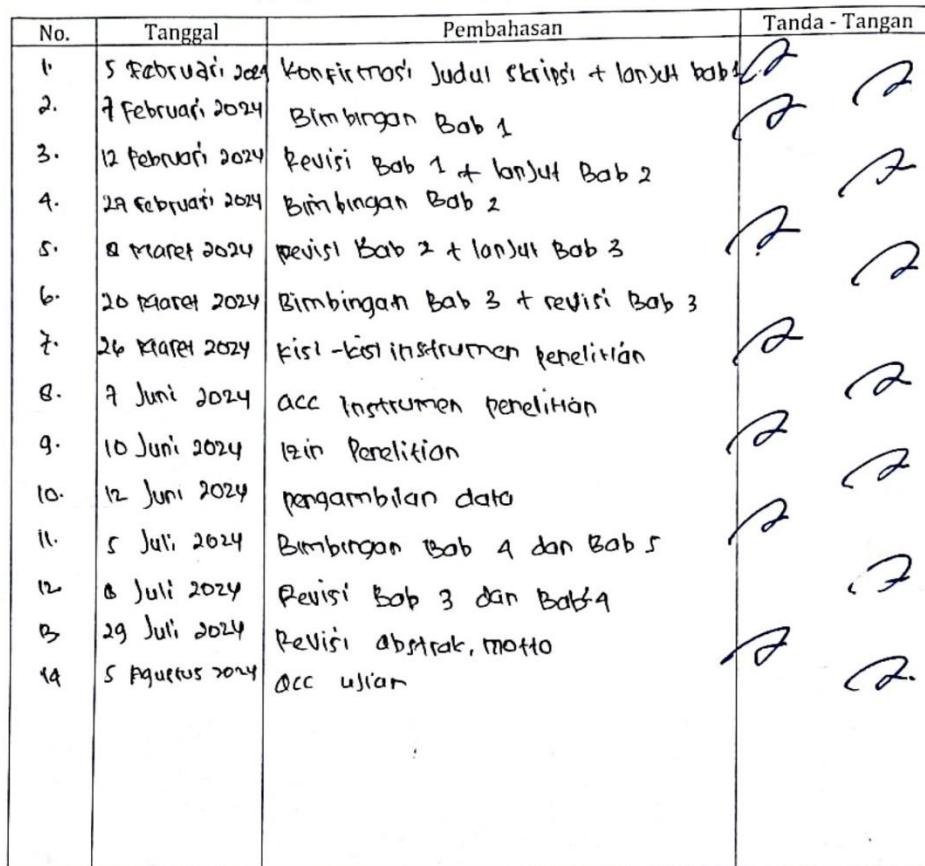 No. Tanggal Pembahasan Tanda - Tangan
1. 5 Februari 2024 Konfirmasi Judul skripsi + lanjut bab 1
2. 7 Februari 2024 Bimbingan Bab 1
3. 12 Februari 2024 Revisi Bab 1 + lanjut Bab 2
4. 29 Februari 2024 Bimbingan Bab 2
5. 8 Maret 2024 Revisi Bab 2 + lanjut Bab 3
6. 20 Maret 2024 Bimbingan Bab 3 + revisi Bab 3
7. 26 Maret 2024 Kisi-kisi instrumen penelitian
8. 7 Juni 2024 acc Instrumen penelitian
9. 10 Juni 2024 Izin Penelitian
10. 12 Juni 2024 pengambilan data
11. 5 Juli 2024 Bimbingan Bab 4 dan Bab 5
12 8 Juli 2024 Revisi Bab 3 dan Bab 4
13 29 Juli 2024 Revisi abstrak, motto
14 5 Agustus 2024 acc ujian